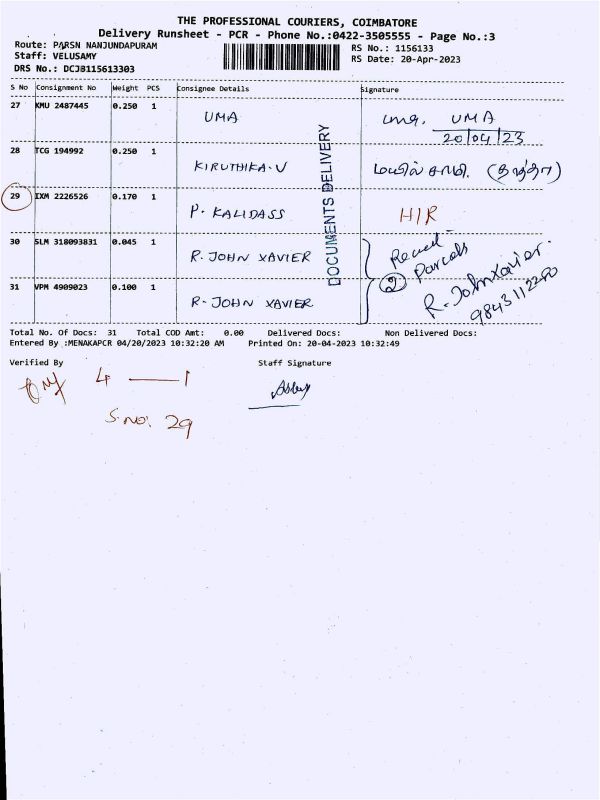 THE PROFESSIONAL COURIERS, COIMBATORE
Delivery Runsheet - PCR - Phone No.:0422-3505555 - Page No.:3
Route: PARSN NANJUNDAPURAM
RS No.: 1156133
Staff: VELUSAMY
RS Date: 20-Apr-2023
DRS No.: DCJB115613303
S No Consignment No Weight PCS Consignee Details Signature
27 KMU 2487445 0.250 1 UMA UMA
20/04/23
28 TCG 194992 0.250 1 KIRUTHIKA.V மயில்சாமி. (தாத்தா)
29 IXM 2226526 0.170 1 P. KALIDASS HIR
30 SLM 318093831 0.045 1 R. JOHN XAVIER
31 VPM 4909023 0.100 1 R- JOHN XAVIER
Recved
② Parcels
R. John Xavier.
9843112280
DOCUMENTS DELIVERY
Total No. Of Docs: 31 Total COD Amt: 0.00 Delivered Docs: Non Delivered Docs:
Entered By :MENAKAPCR 04/20/2023 10:32:20 AM Printed On: 20-04-2023 10:32:49
Verified By Staff Signature
4 — 1
S.no: 29